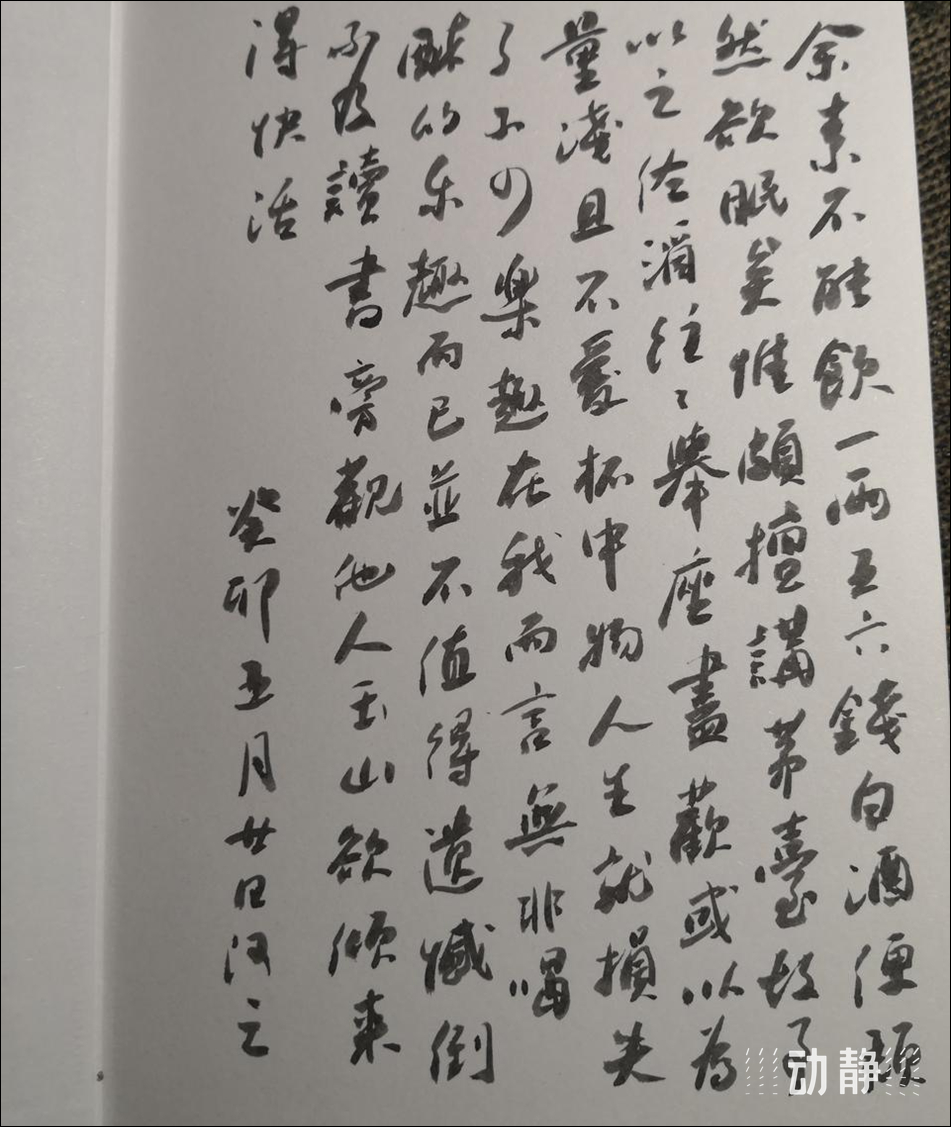 余素不能飲一兩五六錢白酒便頹
然欲眠矣惟頗擅講茅臺故事
以之佐酒往〻舉座盡歡或以為
量淺且不愛杯中物人生就損失
了不少樂趣在我而言無非喝
醉的乐趣而已並不值得遺憾倒
不及讀書旁觀他人玉山欲傾来
得快活
癸卯五月廿日之
动静